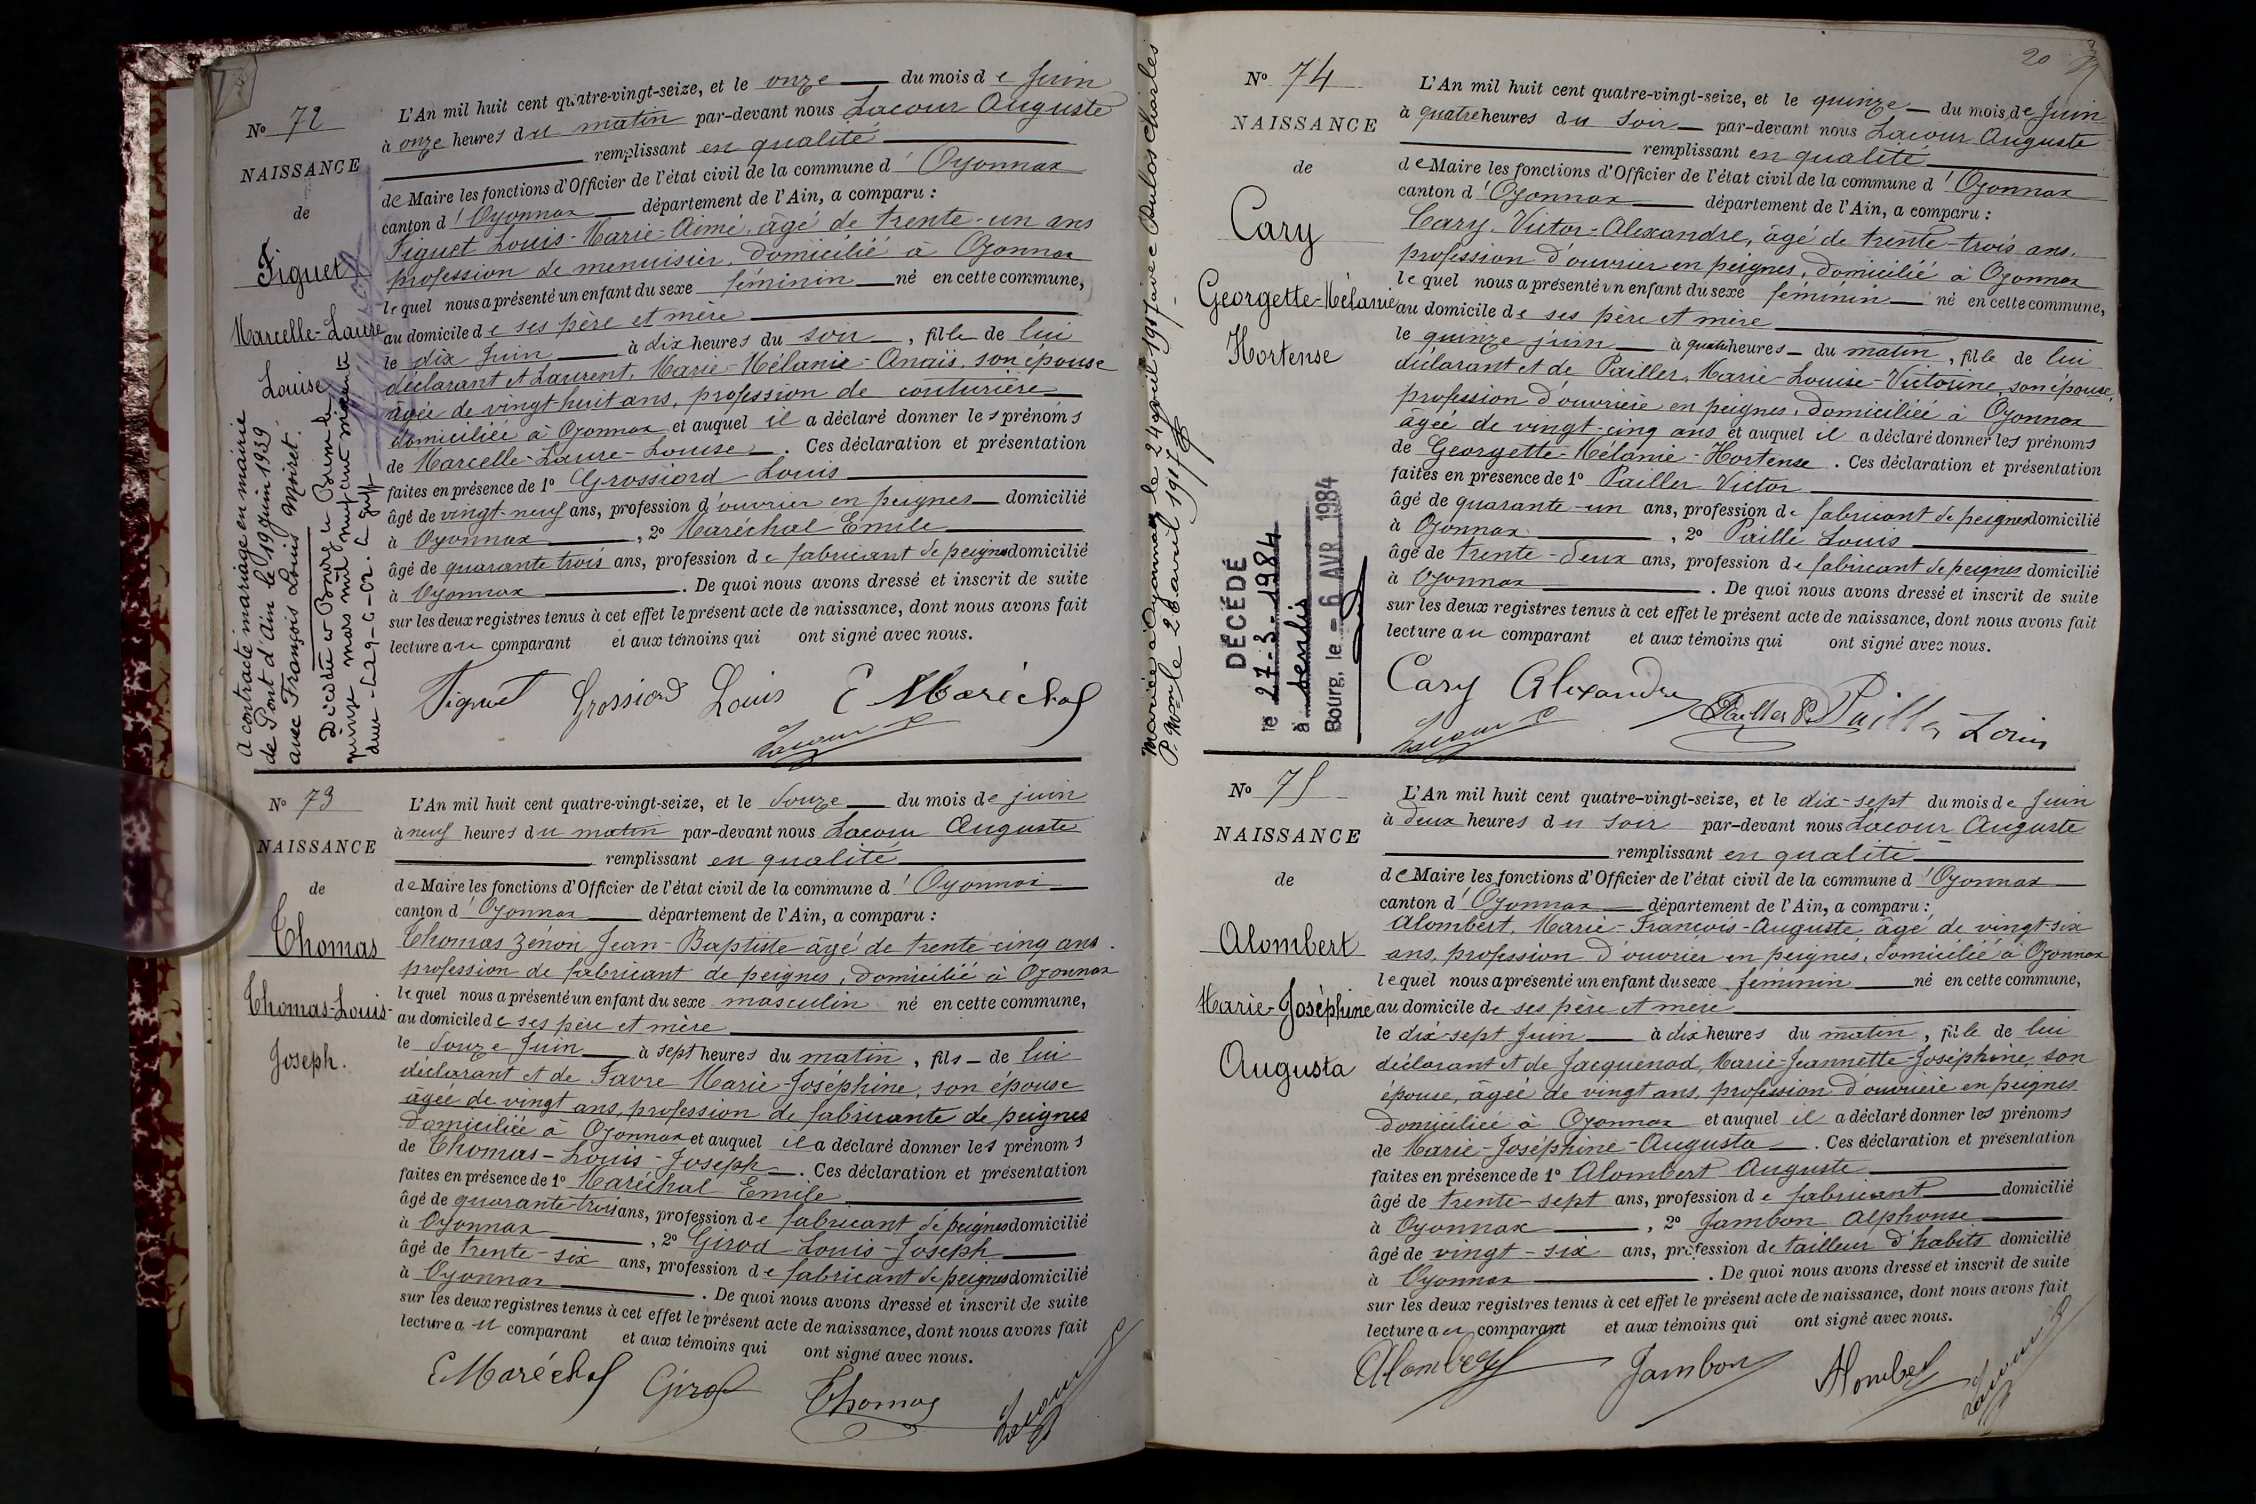 No 72
NAISSANCE
de
Figuet
Marcelle-Laure
Louise
A contracté mariage en mairie
de Pont d'Ain le 19 juin 1939
avec François Louis Moiret.
Décédée à Bourg en Bresse le
quinze mars mil neuf cent soixante
L'An mil huit cent quatre-vingt-seize, et le onze du mois de Juin
à onze heures du matin par-devant nous Lacour Auguste
remplissant en qualité
de Maire les fonctions d'Officier de l'état civil de la commune d'Oyonnax
canton d'Oyonnax département de l'Ain, a comparu :
Figuet Louis-Marie-Aimé, âgé de trente-un ans
profession de menuisier, domicilié à Oyonnax
lequel nous a présenté un enfant du sexe féminin né en cette commune,
au domicile de ses père et mère
le dix Juin à dix heures du soir, fille de lui
déclarant et Laurent, Marie-Mélanie-Anaïs, son épouse
âgée de vingt huit ans, profession de couturière
domiciliée à Oyonnax et auquel il a déclaré donner les prénoms
de Marcelle-Laure-Louise. Ces déclaration et présentation
faites en présence de 1° Grossiord Louis
âgé de vingt-neuf ans, profession d'ouvrier en peignes domicilié
à Oyonnax, 2° Maréchal Emile
âgé de quarante trois ans, profession de fabricant de peignes domicilié
à Oyonnax. De quoi nous avons dressé et inscrit de suite
sur les deux registres tenus à cet effet le présent acte de naissance, dont nous avons fait
lecture au comparant et aux témoins qui ont signé avec nous.
Figuet Grossiord Louis E Maréchal
Lacour
No 73
NAISSANCE
de
Thomas
Thomas-Louis-
Joseph.
L'An mil huit cent quatre-vingt-seize, et le douze du mois de juin
à neuf heures du matin par-devant nous Lacour Auguste
remplissant en qualité
de Maire les fonctions d'Officier de l'état civil de la commune d'Oyonnax
canton d'Oyonnax département de l'Ain, a comparu :
Thomas Zénon Jean-Baptiste âgé de trente-cinq ans.
profession de fabricant de peignes, domicilié à Oyonnax
lequel nous a présenté un enfant du sexe masculin né en cette commune,
au domicile de ses père et mère
le douze Juin à sept heures du matin, fils de lui
déclarant et de Favre Marie-Joséphine, son épouse
âgée de vingt ans, profession de fabricante de peignes
domiciliée à Oyonnax et auquel il a déclaré donner les prénoms
de Thomas-Louis-Joseph. Ces déclaration et présentation
faites en présence de 1° Maréchal Emile
âgé de quarante-trois ans, profession de fabricant de peignes domicilié
à Oyonnax, 2° Girod Louis-Joseph
âgé de trente-six ans, profession de fabricant de peignes domicilié
à Oyonnax. De quoi nous avons dressé et inscrit de suite
sur les deux registres tenus à cet effet le présent acte de naissance, dont nous avons fait
lecture au comparant et aux témoins qui ont signé avec nous.
E Maréchal Girod Thomas Lacour
20
No 74
NAISSANCE
de
Cary
Georgette-Mélanie
Hortense
Mariée à Oyonnax le 24 avril 1917 avec Dulos Charles
P. Mon le 26 avril 1917
DÉCÉDÉ
le 27-3-1984
à Senlis
Bourg, le - 6 AVR 1984
L'An mil huit cent quatre-vingt-seize, et le quinze du mois de Juin
à quatre heures du soir par-devant nous Lacour Auguste
remplissant en qualité
de Maire les fonctions d'Officier de l'état civil de la commune d'Oyonnax
canton d'Oyonnax département de l'Ain, a comparu :
Cary, Victor-Alexandre, âgé de trente-trois ans.
profession d'ouvrier en peignes, domicilié à Oyonnax
lequel nous a présenté un enfant du sexe féminin né en cette commune,
au domicile de ses père et mère
le quinze juin à quatre heures du matin, fille de lui
déclarant et de Pailler, Marie-Louise-Victorine, son épouse,
profession d'ouvrière en peignes, domiciliée à Oyonnax
âgée de vingt-cinq ans et auquel il a déclaré donner les prénoms
de Georgette-Mélanie-Hortense. Ces déclaration et présentation
faites en présence de 1° Pailler Victor
âgé de quarante-un ans, profession de fabricant de peignes domicilié
à Oyonnax, 2° Paille Louis
âgé de trente-deux ans, profession de fabricant de peignes domicilié
à Oyonnax. De quoi nous avons dressé et inscrit de suite
sur les deux registres tenus à cet effet le présent acte de naissance, dont nous avons fait
lecture au comparant et aux témoins qui ont signé avec nous.
Cary Alexandre Pailler Paille Louis
Lacour
No 75
NAISSANCE
de
Alombert
Marie-Joséphine
Augusta
L'An mil huit cent quatre-vingt-seize, et le dix-sept du mois de Juin
à deux heures du soir par-devant nous Lacour Auguste
remplissant en qualité
de Maire les fonctions d'Officier de l'état civil de la commune d'Oyonnax
canton d'Oyonnax département de l'Ain, a comparu :
Alombert, Marie-François-Auguste âgé de vingt-six
ans, profession d'ouvrier en peignes, domicilié à Oyonnax
lequel nous a présenté un enfant du sexe féminin né en cette commune,
au domicile de ses père et mère
le dix-sept Juin à dix heures du matin, fille de lui
déclarant et de Jacquenod, Marie-Jeannette-Joséphine, son
épouse, âgée de vingt ans, profession d'ouvrière en peignes
domiciliée à Oyonnax et auquel il a déclaré donner les prénoms
de Marie-Joséphine-Augusta. Ces déclaration et présentation
faites en présence de 1° Alombert Auguste
âgé de trente-sept ans, profession de fabricant domicilié
à Oyonnax, 2° Jambon Alphonse
âgé de vingt-six ans, profession de tailleur d'habits domicilié
à Oyonnax. De quoi nous avons dressé et inscrit de suite
sur les deux registres tenus à cet effet le présent acte de naissance, dont nous avons fait
lecture au comparant et aux témoins qui ont signé avec nous.
Alombert Jambon Alombert Lacour